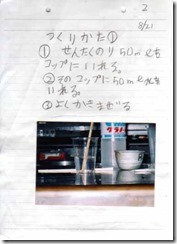 2
8/21
つくりかた①
① せんたくのり50mlを
コップにいれる。
② そのコップに50ml水を
いれる。
③よくかきまぜる